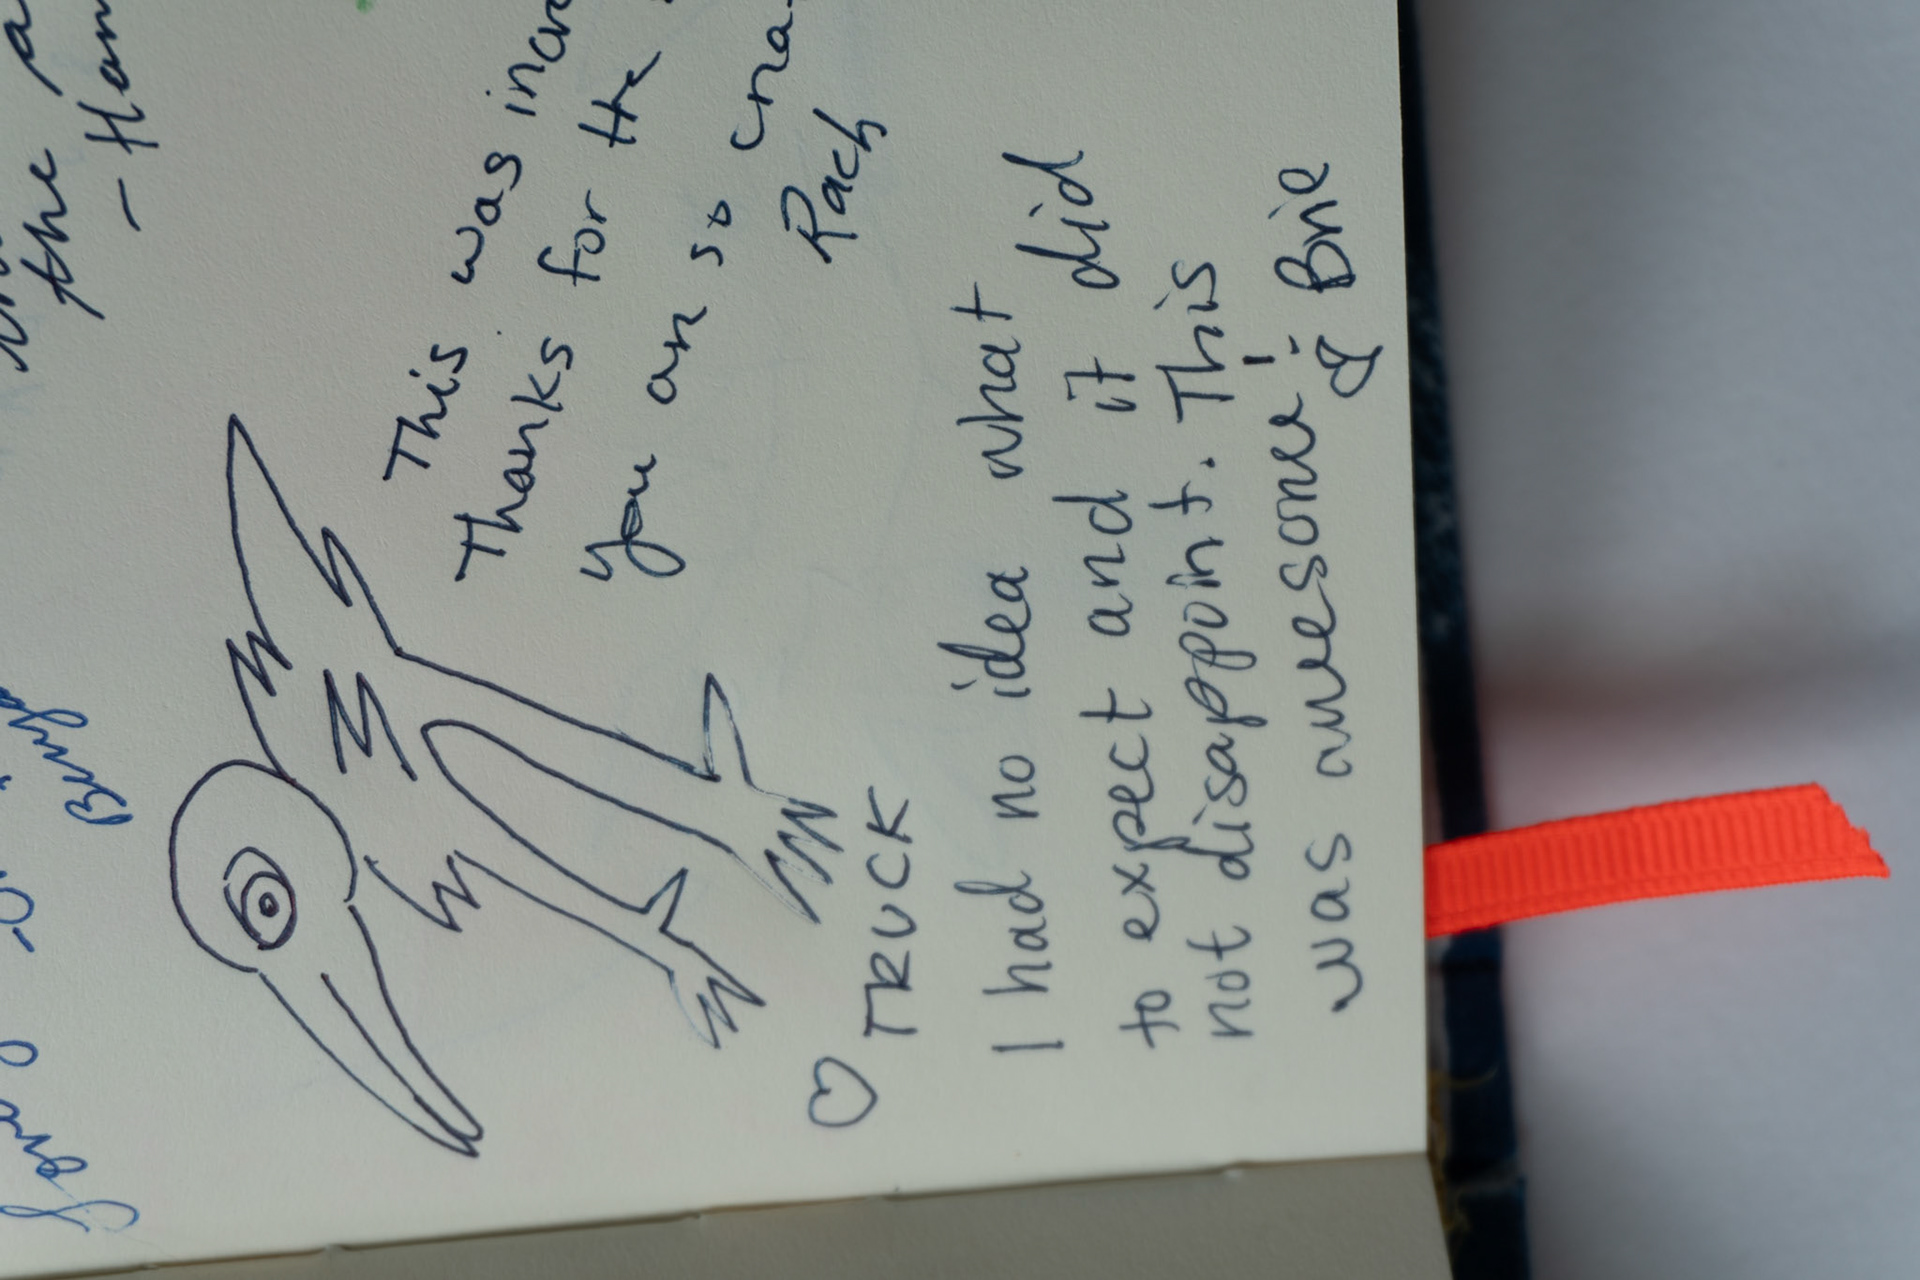 the
This was
Thanks for the
you are so
Rach
♡ TRUCK
I had no idea what
to expect and it did
not disappoint. This
was awesome!
Brie